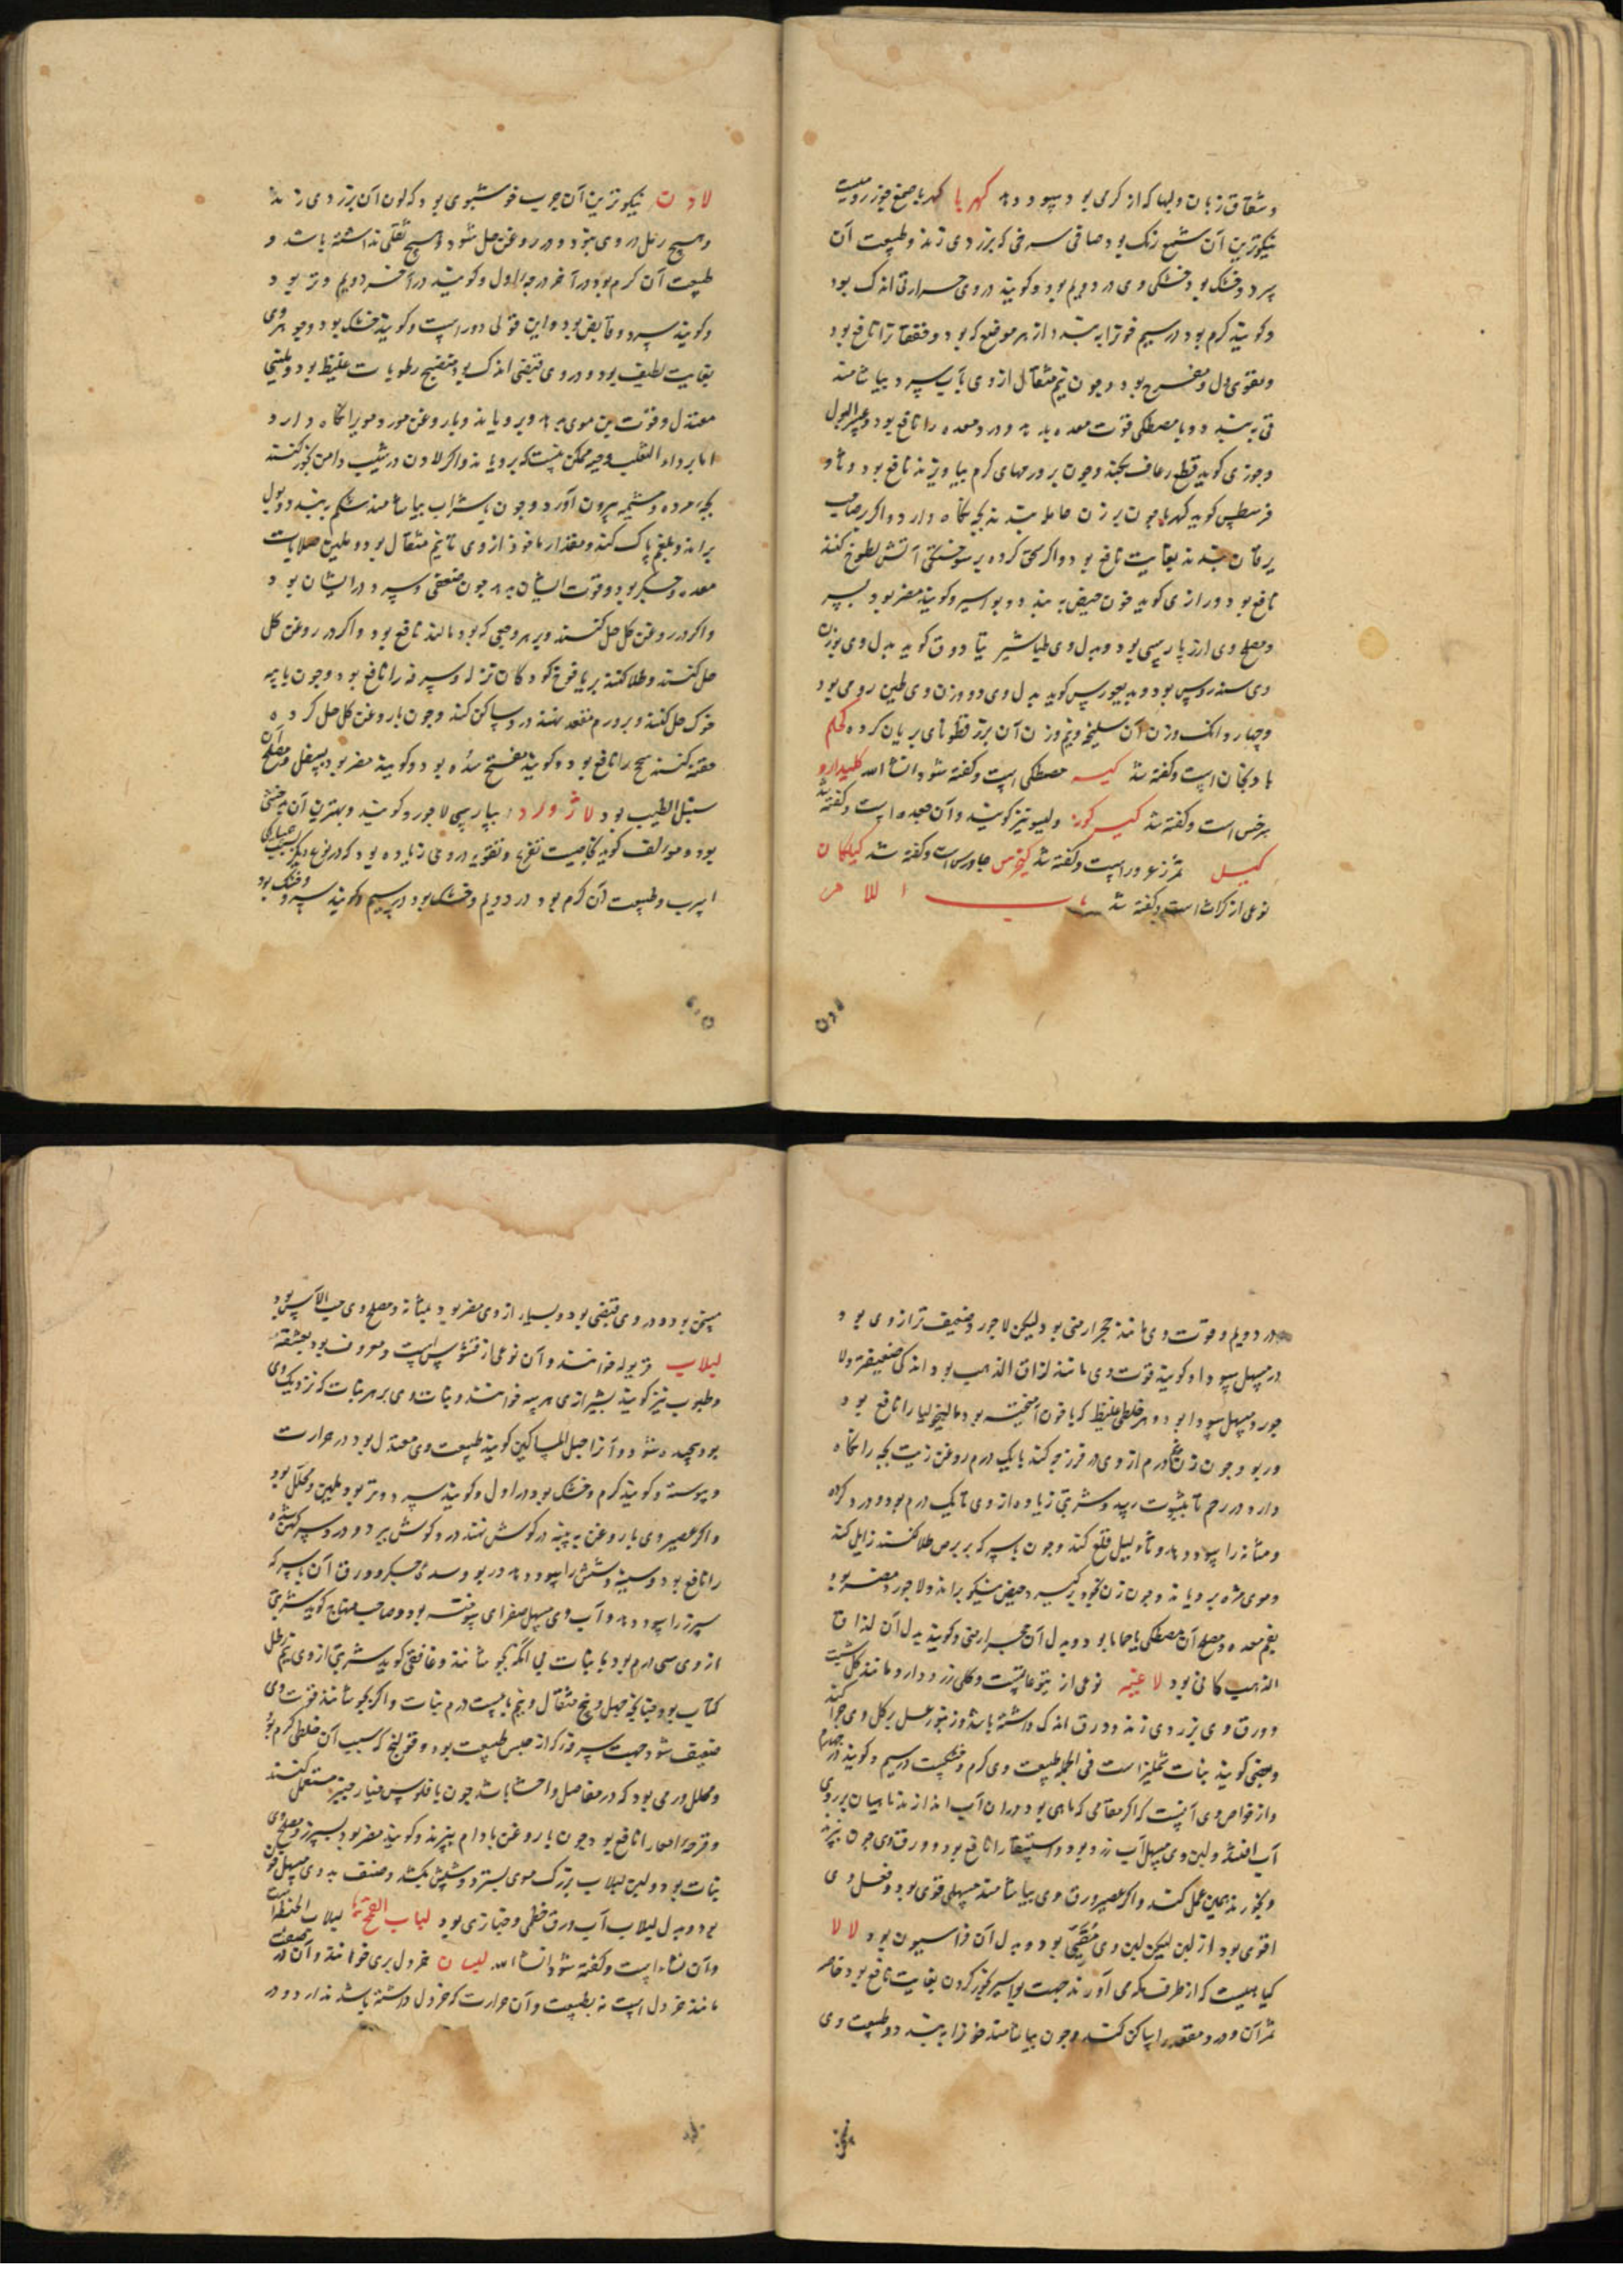 و شقاق زبان و لبها که از گرمی بود سود دهد کهربا کهربا صمغ جوز رومیست
نیکوترین آن شمع رنگ بود صافی سرخی که بزردی زند و طبیعت آن
سرد و خشک بود و خشکی وی در دویم بود و کویند در وی حرارتی اندک بود
و کویند گرم بود در سیم خونرا ببندد از هر موضع که بود و خفقانرا نافع بود
و مقوی دل و مفرح بود و چون نیم مثقال از وی بآب سرد بیاشامند
قی ببندد و با مصطکی قوت معده بدهد و درد معده را نافع بود و عسر البول
و جوزی کوید قطع رعاف بکند و چون بر ورمهای گرم بیاویزند نافع بود و ثاو
فرسطس کوید کهربا چون بر زن حامله بندند بچه نگاه دارد و اگر بر صاحب
یرقان بندند بغایت نافع بود و اگر سحق کرده بر سوختگی آتش لطوخ کنند
نافع بود و رازی کوید خون حیض ببندد و بواسیر و کویند مضر بود بسر
و مصلح وی ارز پارسی بود و بدل وی طباشیر یتادوق کوید بدل وی بوزن
وی سندروس بود و بدیغورس کوید بدل وی دو وزن وی طین رومی بود
و چهار دانک وزن آن سلیخه و نیم وزن آن بزر قطونای بریان کرده کهکم
بادنجان است و گفته شد کیه مصطکی است و گفته شود انشاءالله کلیدارو
سرخس است و گفته شد
کیل ثمر زعرور است و گفته شد جاورس است و گفته شد کیلکان
نوعی از کراث است و گفته شد باب اللام
لادن
لادن نیکوترین آن چرب خوشبوی بود که لون آن بزردی زند
و هیچ رمل در وی نبود و در روغن حل شود و هیچ ثقلی نداشته باشد و
طبیعت آن گرم بود در آخر درجه اول و کویند در آخر دویم و تر بود و
و کویند سرد و قابض بود و این قولی دور است و کویند خشک بود و جوهر وی
بغایت لطیف بود و در وی قبضی اندک بود منضج رطوبات غلیظ بود و ملینی
معتدل و قوت بن موی بدهد و برویاند و با روغن مورد مویرا نگاه دارد
اما بر داء الثعلب و حیه ممکن نیست که برویاند و اگر لادن در شیب دامن بخور کنند
بچه مرده و مشیمه بیرون آورد و چون بشراب بیاشامند شکم ببندد و بول
براند و بلغم پاک کند و مقدار ماخوذ از وی تا نیم مثقال بود و ملین صلابات
معده و جگر بود و قوت ایشان بدهد چون ضعفی و سرد در ایشان بود و
و اگر در روغن گل حل کنند و بر هر وجعی که بود بمالند نافع بود و اگر در روغن گل
حل کنند و طلا کنند بر یافوخ کودکان نزله و سرفه را نافع بود و چون با پیه
خوک حل کنند و بر ورم مقعد نهند درد ساکن کند و چون با روغن گل حل کرده
حقنه کنند سحج را نافع بود و کویند مفتح سده بود و کویند مضر بود بسفل و مصلح آن
سنبل الطیب بود لاژورد بپارسی لاجورد کویند و بهترین آن بدخشی
بود و مولف کوید بخاصیت تفریح و تقویه در وی زیاده بود که در نوع دیگر
اسرب و طبیعت آن گرم بود در دویم و خشک بود در سیم و کویند سرد و خشک بود
در دویم و قوت وی مانند حجر ارمنی بود و لیکن لاجورد ضعیف تر از وی بود
در مسهل سودا و کویند قوت وی مانند لزاق الذهب بود اندکی ضعیفتر و لا
جورد مسهل سودا بود و هر خلطی غلیظ که با خون آمیخته بود مالیخولیا را نافع بود
و ربو و چون زن درم از وی در فرزجه کند با یک درم روغن زیت بچه را نگاه
دارد در رحم تا بثبوت رسد و شربتی زیاده از وی تا یک درم بود و درد گرده
و مثانه را سود دهد و ثآلیل قلع کند و چون با سرکه بر برص طلا کنند زایل کند
و موی مژه برویاند و چون زن بخود بر گیرد حیض نیکو براند و لاجورد مضر بود
بفم معده و مصلح آن مصطکی یا حماما بود و بدل آن حجر ارمنی و کویند بدل آن لزاق
الذهب کانی بود لاغیه نوعی از یتوعاتست و گلی زرد دارد مانند گل شبت
و ورق وی بزردی زند و ورق اندک داشته باشد و زنبور عسل بر گل وی چرا کند
و بعضی کویند نبات تملیز است فی الجمله طبیعت وی گرم و خشکست در سیم و کویند در چهارم
و از خواص وی آنست که اگر مقامی که ماهی بود در آن آب اندازند ماهیان بر روی
آب افتند و لبن وی مسهل آب زرد بود و استسقا را نافع بود و ورق وی چون بپزند
و بخورند همین عمل کند و اگر عصیر ورق وی بیاشامند مسهلی قوی بود و فعل وی
اقوی بود از لبن لیکن لبن وی مقیی بود و بدل آن فراسیون بود لالا
گیاهیست که از طرف مکه می آورند جهت بواسیر بخور کردن بغایت نافع بود خاصه
ثمر آن و درد مقعد را ساکن کند و چون بیاشامند خونرا ببندد و طبیعت وی
مسخن بود و در وی قبضی بود و بسیار از وی مضر بود بمثانه و مصلح وی حب الآس بود
لبلاب قریوله خوانند و آن نوعی از قسوس است و معروف بود بعشقه
و حلبوب نیز کویند بشیرازی مریه خوانند و نبات وی بر هر نبات که نزدیک وی
بود پیچیده شود و آنرا حبل المساکین کویند طبیعت وی معتدل بود در حرارت
و یبوسة و کویند گرم و خشک بود در اول و کویند سرد و تر بود و ملین و محلل بود
و اگر عصیر وی با روغن به پنبه در گوش نهند درد گوش ببرد و درد سر کهن شده
را نافع بود و سینه و شش را سود دهد و ربو و سده جگر و ورق آن با سرکه
سپرز را سود دهد و آب وی مسهل صفرای سوخته بود و صاحب منهاج کوید شربتی
از وی سی درم بود با نبات بی آنکه بجوشانند و غافقی کوید شربتی از وی نیم رطل
کمتاب بود چنانکه چهل و پنج مثقال و نیم با بیست درم نبات و اگر بجوشانند قوت وی
ضعیف شود جهت سرفه که از حبس طبیعت بود و قولنج که سبب آن خلطی گرم بود
و محلل ورمی بود که در مفاصل و احشا باشد چون با فلوس خیار چنبر مستعمل کنند
و قرحه امعا را نافع بود چون با روغن بادام بپزند و کویند مضر بود بسپرز و مصلح وی
نبات بود و لبن لبلاب بزرگ موی بسترد و شپش بکشد
بود و بدل لبلاب آب ورق خطمی و خبازی بود لباب القمح لباب الحنطه
و آن نشا است و گفته شود انشاءالله لبسان خردل بری خوانند و آن در
مانند خردل است نه بطبیعت و آن حرارت که خردل داشته باشد ندارد و در